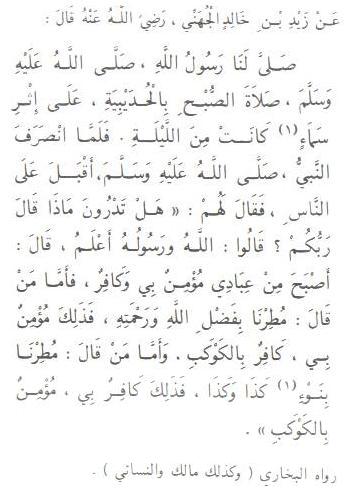 عَنْ زَيْدِ بْنِ خَالِدٍ الْجُهَنِيِّ ، رَضِيَ اللهُ عَنْهُ قَالَ :
صَلَّى لَنَا رَسُولُ اللهِ ، صَلَّى اللهُ عَلَيْهِ
وَسَلَّمَ ، صَلَاةَ الصُّبْحِ بِالْحُدَيْبِيَةِ ، عَلَى إِثْرِ
سَمَاءٍ (١) كَانَتْ مِنَ اللَّيْلَةِ . فَلَمَّا انْصَرَفَ
النَّبِيُّ ، صَلَّى اللهُ عَلَيْهِ وَسَلَّمَ، أَقْبَلَ عَلَى
النَّاسِ ، فَقَالَ لَهُمْ : « هَلْ تَدْرُونَ مَاذَا قَالَ
رَبُّكُمْ ؟ قَالُوا : اللهُ وَرَسُولُهُ أَعْلَمُ ، قَالَ :
أَصْبَحَ مِنْ عِبَادِي مُؤْمِنٌ بِي وَكَافِرٌ ، فَأَمَّا مَنْ
قَالَ : مُطِرْنَا بِفَضْلِ اللهِ وَرَحْمَتِهِ ، فَذَلِكَ مُؤْمِنٌ
بِي ، كَافِرٌ بِالْكَوْكَبِ . وَأَمَّا مَنْ قَالَ : مُطِرْنَا
بِنَوْءِ (١) كَذَا وَكَذَا ، فَذَلِكَ كَافِرٌ بِي ، مُؤْمِنٌ
بِالْكَوْكَبِ » .
رواه البخاري ( وكذلك مالك والنسائي ) .